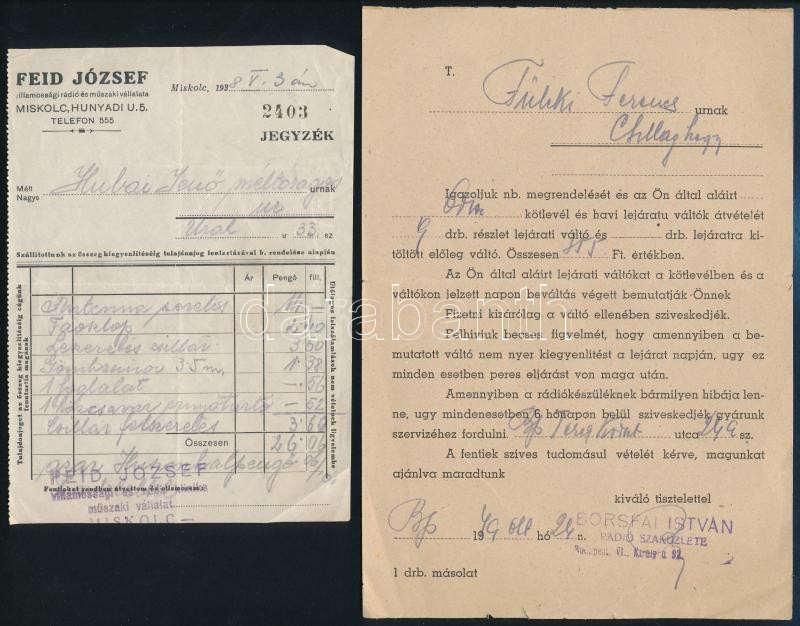 FEID JÓZSEF
villamossági rádió és műszaki vállalata
MISKOLC, HUNYADI U. 5.
TELEFON 555
Miskolc, 1938 V. 3 án
2403
JEGYZÉK
Mélt
Nagys
Hubai Jenő méltóságos urnak
ur
u 33 sz
Szállitottunk az összeg kiegyenlitéséig tulajdonjog fentartásával b. rendelése alapján
Tulajdonjogot az összeg kiegyenlitéséig cégünk
fenntartja magának
Ár Pengő fill.
Antenna szerelés 11 –
2 40
csillár 3 60
3.5 m. 1 38
1 foglalat – 56
1 – 52
Csillár felszerelés 3 60
Összesen 26 06
azaz Huszonhat pengő 06/10
Utólagos felszámlálások nem vétetnek figyelembe
Fentieket rendben átvettem és elismerem:
FEID JÓZSEF
villamossági és
műszaki vállalat
MISKOLC
T.
Füleki Ferenc urnak
Csillaghegy
Igazoljuk nb. megrendelését és az Ön által aláirt
Orion kötlevél és havi lejáratu váltók átvételét
9 drb. részlet lejárati váltó és drb. lejáratra ki-
töltött előleg váltó. Összesen 885 Ft. értékben.
Az Ön által aláirt lejárati váltókat a kötlevélben és a
váltókon jelzett napon beváltás végett bemutatják Önnek
Fizetni kizárólag a váltó ellenében sziveskedjék.
Felhivjuk becses figyelmét, hogy amennyiben a be-
mutatott váltó nem nyer kiegyenlitést a lejárat napján, ugy ez
minden esetben peres eljárást von maga után.
Amennyiben a rádiókészüléknek bármilyen hibája len-
ne, ugy mindenesetben 6 hónapon belül sziveskedjék gyárunk
szervizéhez fordulni. Bp Teréz körút utca sz.
A fentiek szives tudomásul vételét kérve, magunkat
ajánlva maradtunk
kiváló tisztelettel
Bp 1949 okt hó 24 n.
BORSFAI ISTVÁN
RÁDIÓ SZAKÜZLETE
Budapest, VI., Király u 92.
1 drb. másolat
darabanth